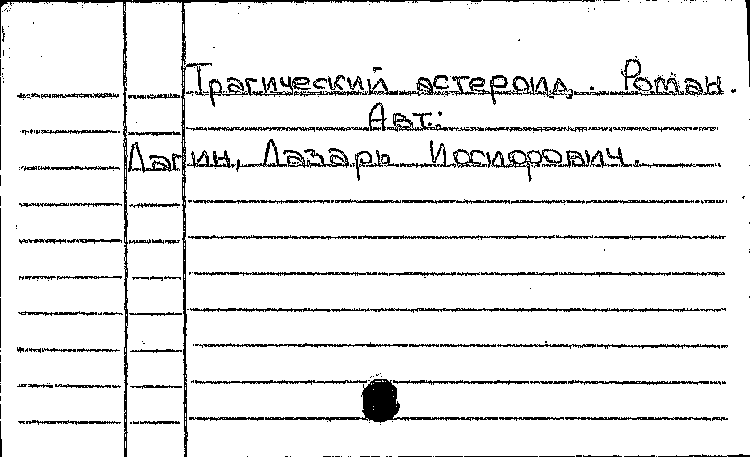 Трагический астероид. Роман.
Авт.:
Лагин, Лазарь Иосифович.